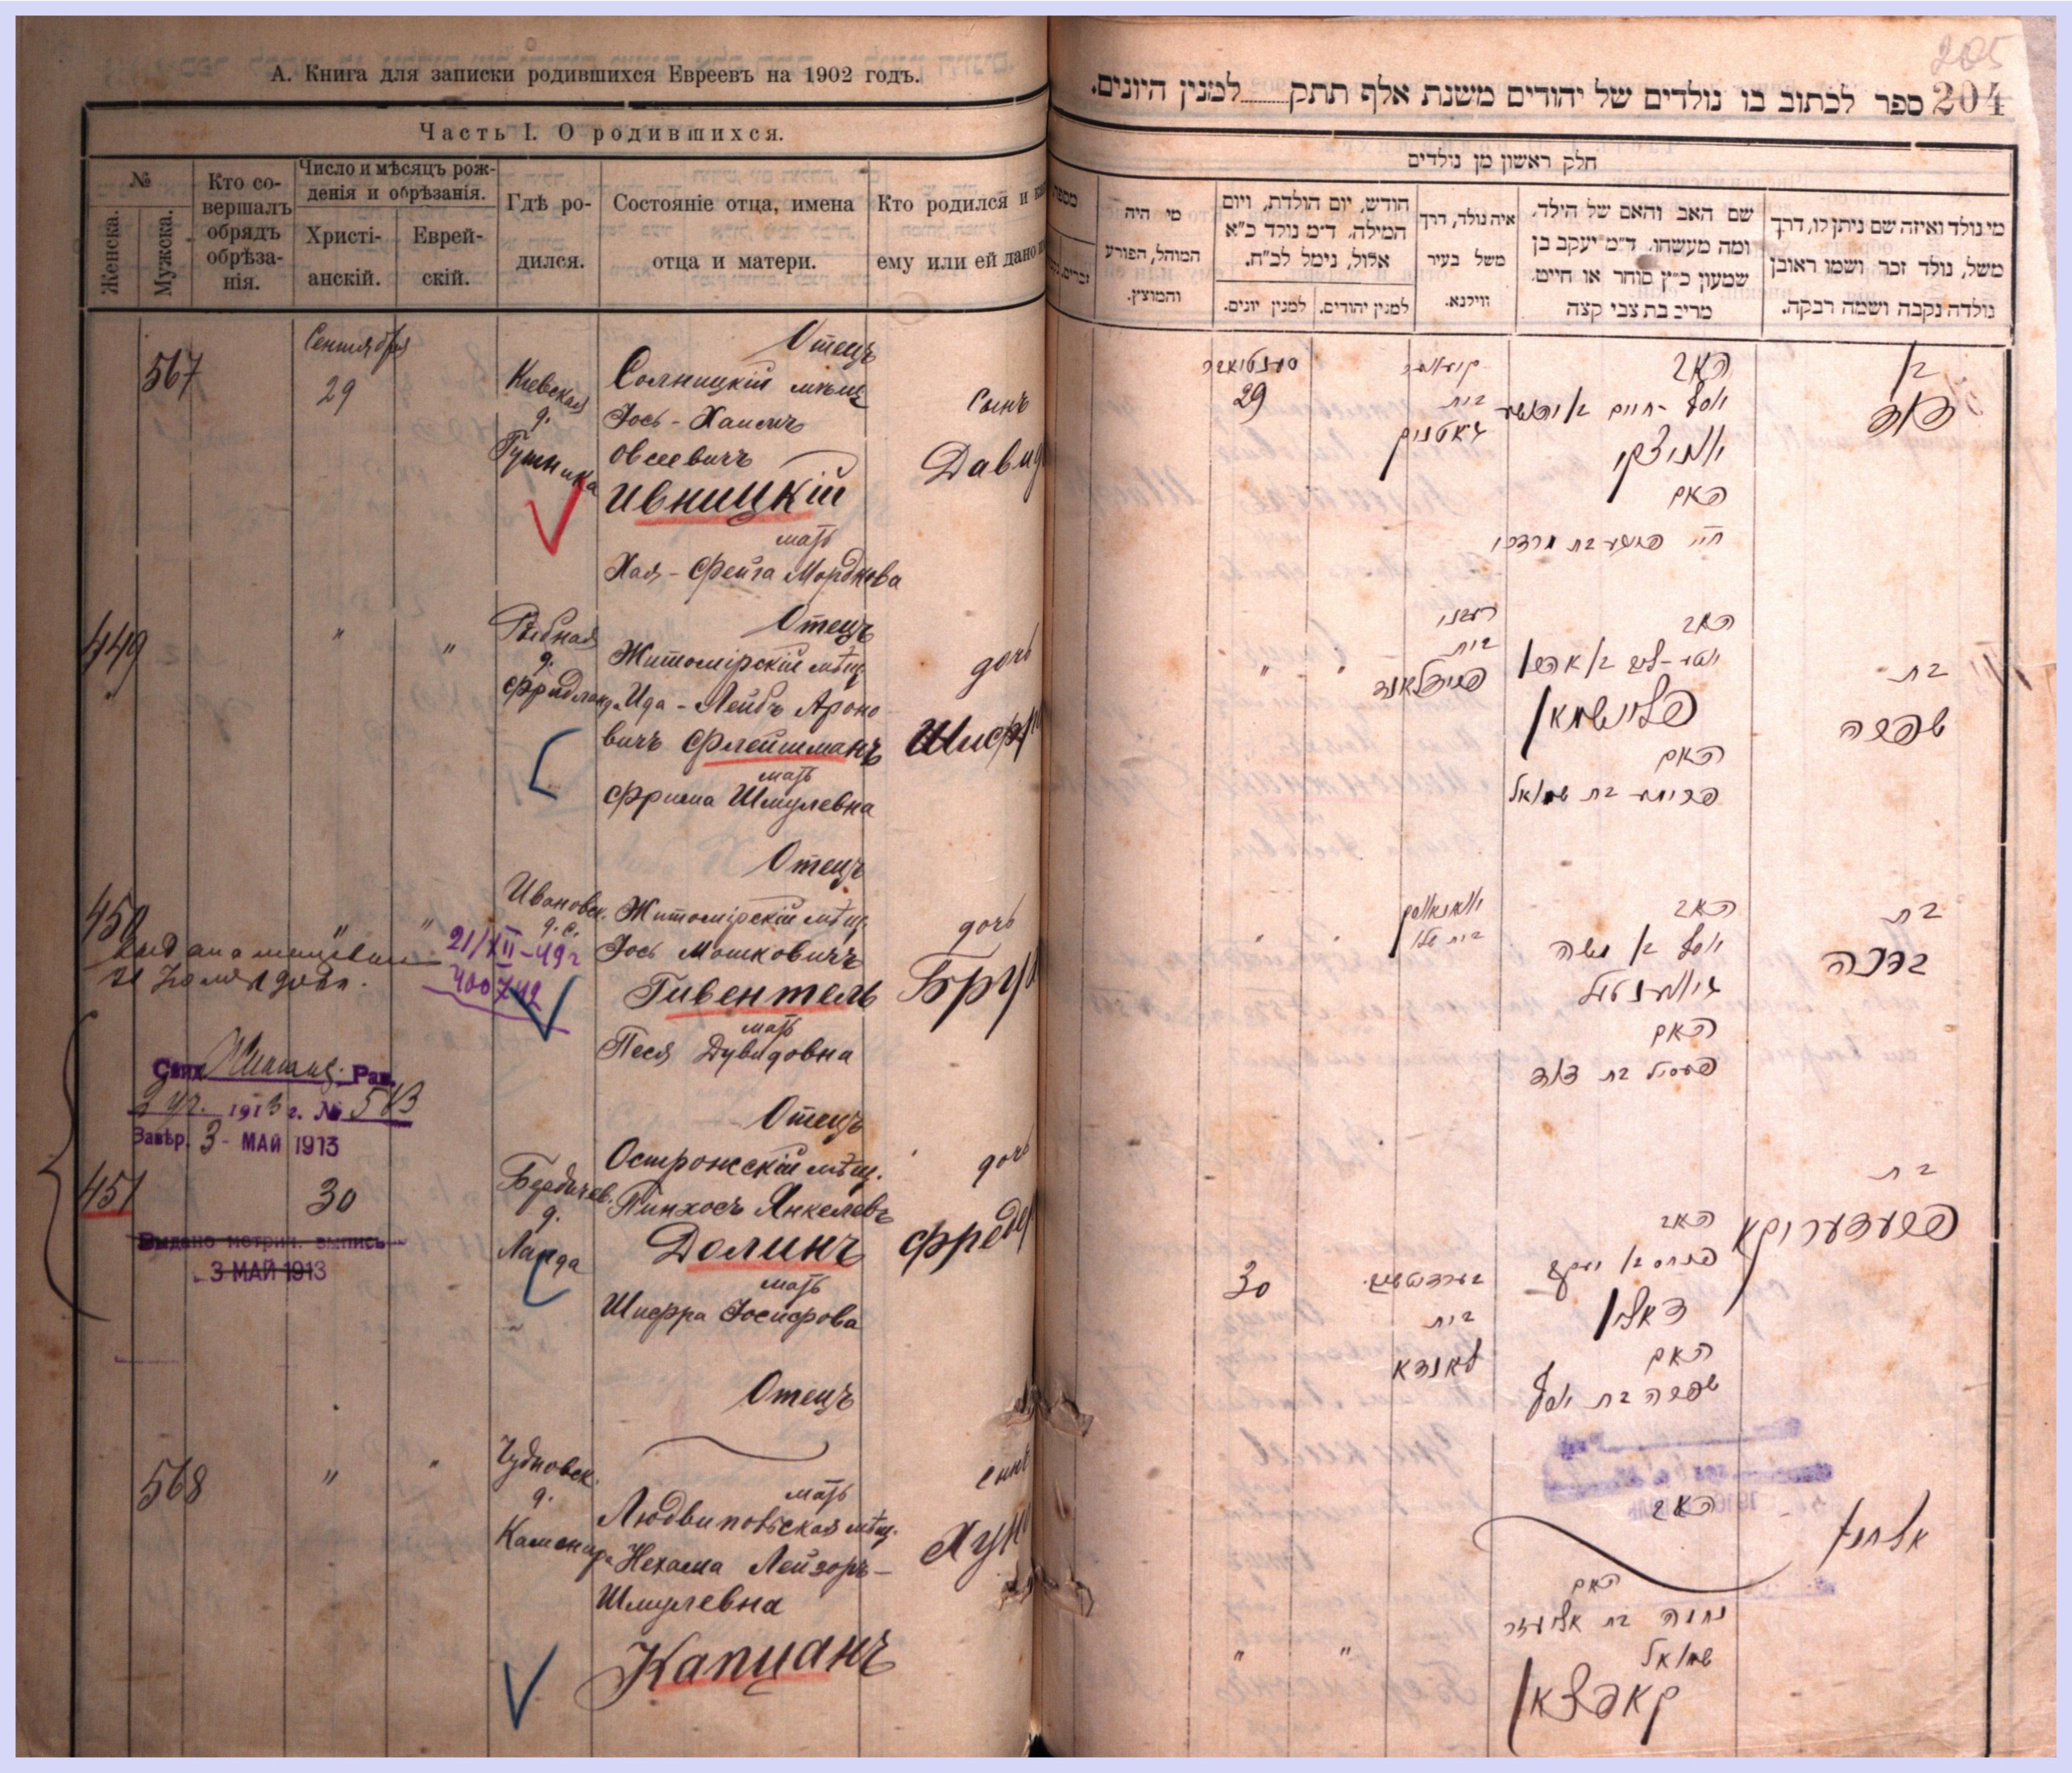 А. Книга для записки родившихся Евреевъ на 1902 годъ.
Часть I. О родившихся.
№
Женска.
Мужска.
Кто со-
вершалъ
обрядъ
обрѣза-
нія.
Число и мѣсяцъ рож-
денія и обрѣзанія.
Христі-
анскій.
Еврей-
скій.
Гдѣ ро-
дился.
Состояніе отца, имена
отца и матери.
Кто родился и
ему или ей дано
567
Сентября
29
Кіевская
д.
Отецъ
Солницкій мѣщ
Іось-Хаимъ
Овсеевичъ
Ивницкій
мать
Хая-Фейга Мордкова
сынъ
Давид
449
"
"
Рыбная
д.
Фридланда
Отецъ
Житомірскій мѣщ.
Ида-Лейбъ Ароно
вичъ Флейшманъ
мать
Фрима Шмулевна
дочь
Шифр
450
"
"
Ивановск.
д. с.
21/XII-49г
400742
Отецъ
Житомірскій мѣщ.
Іось Мошковичъ
Гивентель
мать
Песя Дувидовна
дочь
Бру
Рав.
1913 г. № 583
Завѣр. 3 - МАЙ 1913
451
30
Выдано метрич. выпись
3 МАЙ 1913
Бердичев.
д.
Ланда
Отецъ
Острожскій мѣщ.
Пинхосъ Янкелевъ
Долинъ
мать
Шифра Іосифова
дочь
Фредер
568
"
"
Чудновск.
д.
Отецъ
мать
Людвипольская мѣщ.
Нехама Лейзоръ-
Шмулевна
Капцанъ
сынъ
205
204
ספר לכתוב בו נולדים של יהודים משנת אלף תתק למנין היונים.
חלק ראשון מן נולדים
מי היה
המוהל, הפורע
והמוצץ.
חודש, יום הולדת, ויום
המילה. ד"מ נולד כ"א
אלול, נימל לכ"ח.
למנין יהודים.
למנין יונים.
איה נולד, דרך
משל בעיר
ווילנא.
שם האב והאם של הילד,
ומה מעשהו. ד"מ יעקב בן
שמעון כ"ץ סוחר או חייט.
מרים בת צבי קצה
מי נולד ואיזה שם ניתן לו, דרך
משל, נולד זכר ושמו ראובן
נולדה נקבה ושמה רבקה.
בן
דוד
האב
יוסף-חיים בן יהושע
האם
29
בית
בת
שפרה
האב
פליישמאן
האם
פרימע בת שמואל
בית
פרידלאנד
"
"
בת
ברכה
האב
יוסף בן משה
גיווענטעל
האם
פעסיל בת דוד
בת
פרעדעריקא
האב
פנחס בן יעקב
דאלין
האם
שפרה בת יוסף
בית
לאנדא
30
אלחנן
האב
האם
נחמה בת אליעזר
שמואל
קאפצאן
"
"